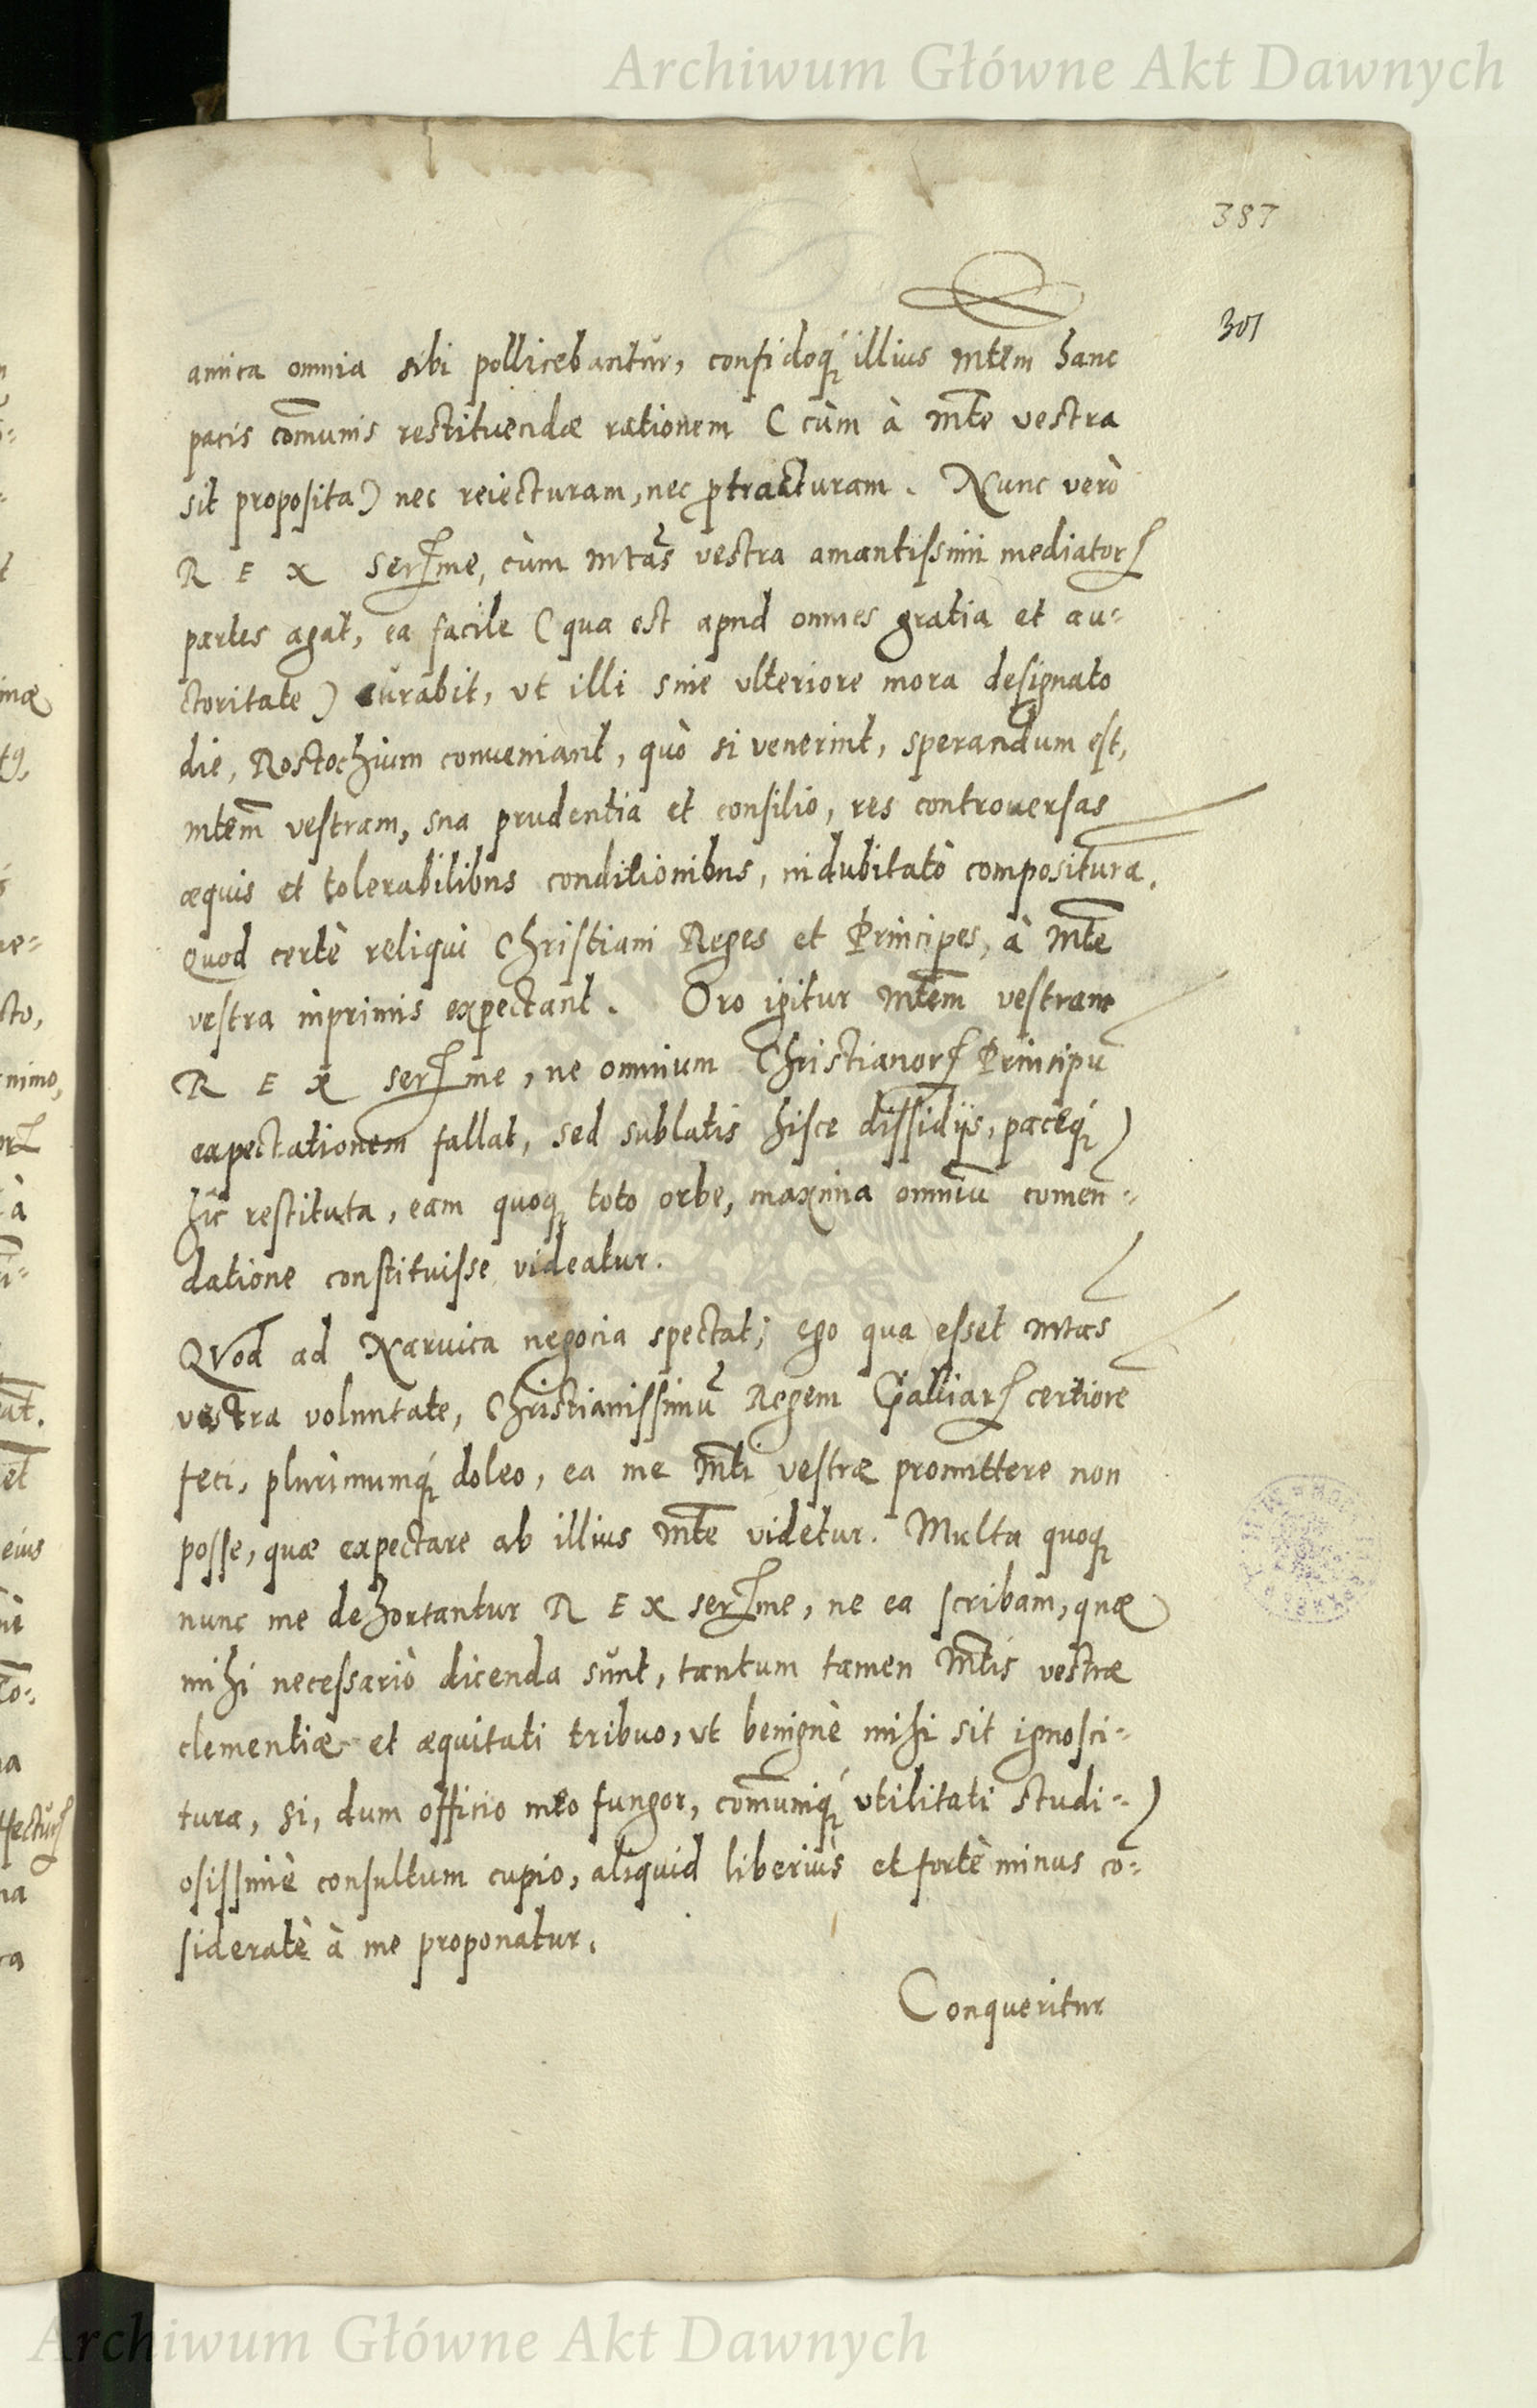 Archiwum Główne Akt Dawnych
387
301
amica omnia sibi pollicebantur, confidoq́ illius Mtem hanc
pacis com̄unis restituendæ rationem (cùm à Mte vestra
sit proposita) nec reiecturam, nec ꝓtracturam. Nunc verò
REX serme, cùm Mtas vestra amantissimi mediatorꝭ
partes agat, ea facile (qua est apud omnes gratia et au-
ctoritate) curabit, vt illi sine vlteriore mora designato
die, Rostochium conueniant, quò si venerint, sperandum est,
Mtem vestram, sua prudentia et consilio, res controuersas
æquis et tolerabilibus conditionibus, indubitatò compositura.
Quod certè reliqui Christiani Reges et Principes, à Mte
vestra inprimis expectant. Oro igitur Mtem vestram
REX serme, ne omnium Christianorꝭ Principū
expectationem fallat, sed sublatis hisce dissidijs, paceq́
hîc restituta, eam quoq toto orbe, maxima omniū comen-
datione constituisse videatur.
QVod ad Naruica negocia spectat; ego qua esset Mtas
vestra voluntate, Christianissimū Regem Galliarꝭ certiorē
feci, plurimumq́ doleo, ea me Mti vestræ promittere non
posse, quæ expectare ab illius Mte videtur. Multa quoq
nunc me dehortantur REX serme, ne ea scribam, quæ
mihi necessariò dicenda sunt, tantum tamen Mtis vestræ
clementiæ et æquitati tribuo, vt benignè mihi sit ignosci-
tura, si, dum officio meo fungor, com̄uniq́ vtilitati studi-
osissimè consultum cupio, aliquid liberiùs et fortè minus cō-
sideratè à me proponatur.
Conqueritur
Archiwum Główne Akt Dawnych